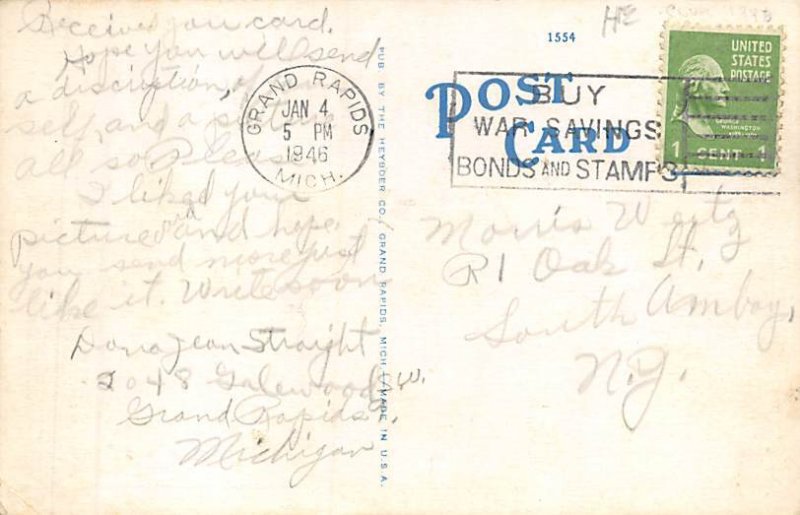 Received your card.
Hope you will send
a discription, of
self, and a picture
all so Please
I liked your
picture and hope
you send more just
like it. Write soon
Dona Jean Straight
2048 Galewood S.W.
Grand Rapids,
Michigan
PUB. BY THE HEYBOER CO., GRAND RAPIDS, MICH. / MADE IN U.S.A.
GRAND RAPIDS
JAN 4
5 PM
1946
MICH.
1554
POST
CARD
BUY
WAR SAVINGS
BONDS AND STAMPS
UNITED
STATES
POSTAGE
GEORGE
WASHINGTON
1 CENT 1
Morris
R1 Oak St,
South Amboy,
N.J.